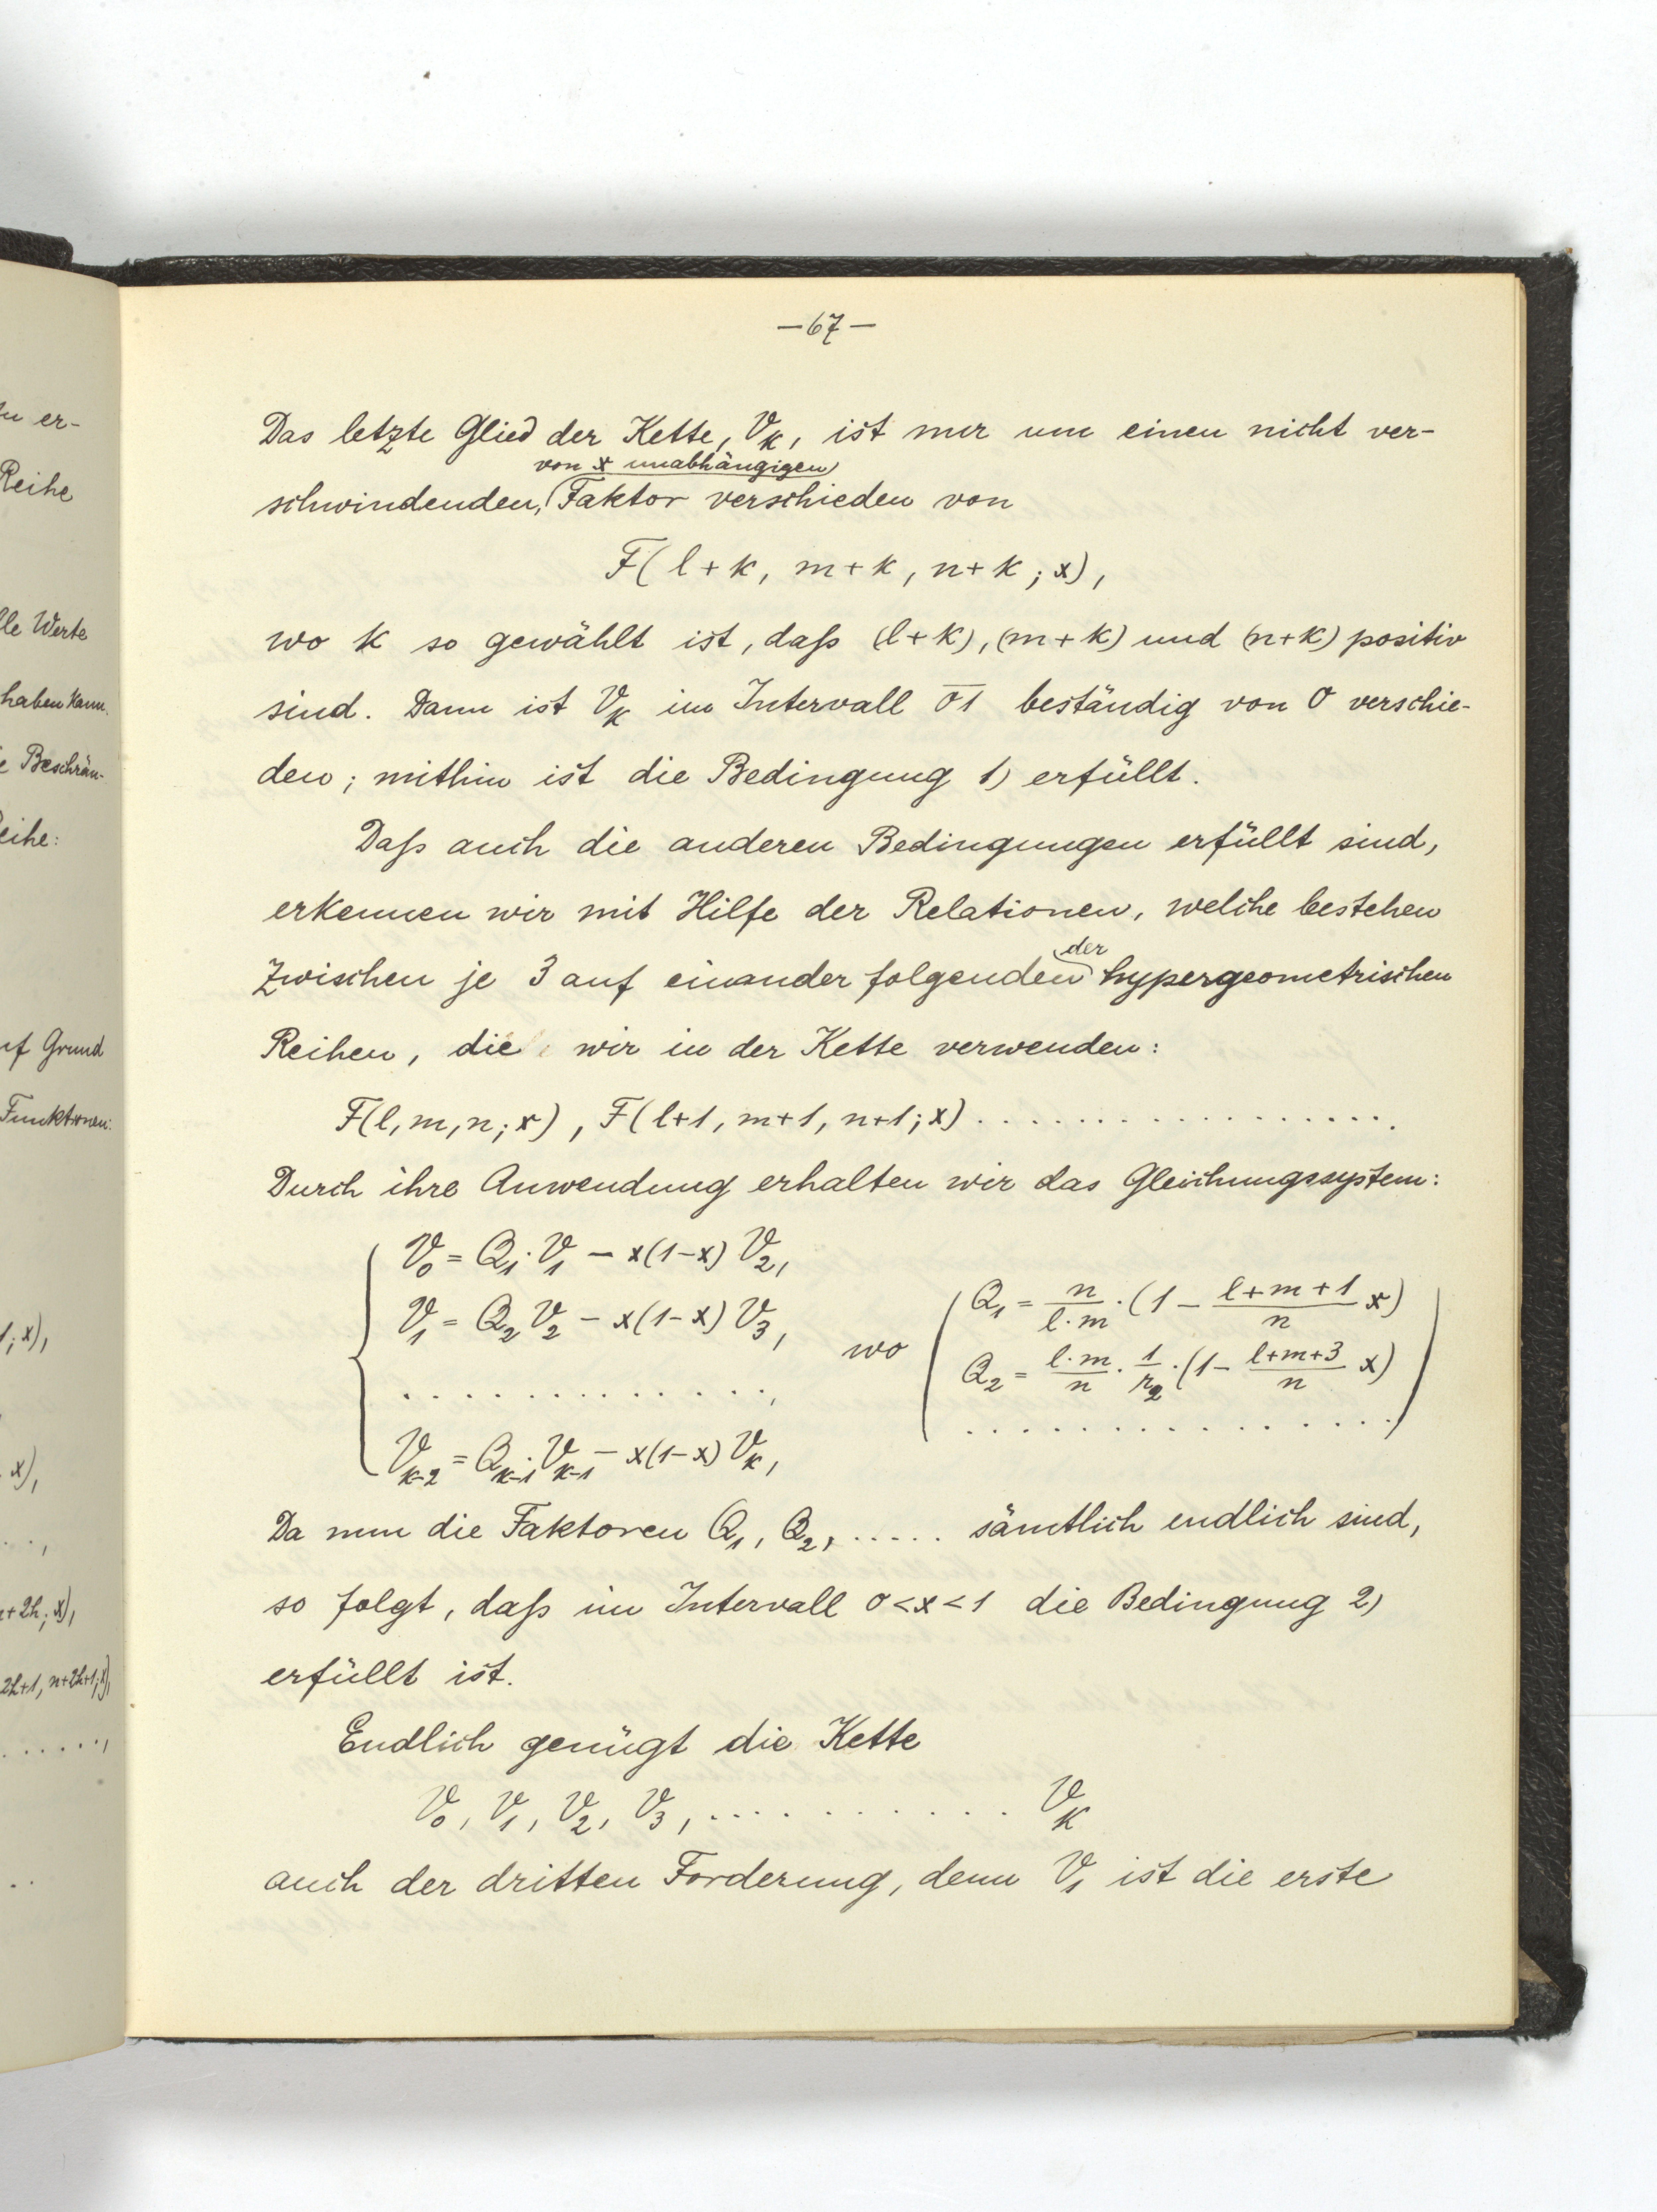 zu er-
Reihe
lle Werte
haben kann.
e Beschrän-
eihe:
uf Grund
Funktionen:
1; x),
x),
+2h; x),
2h+1, n+2h+1; x),
—67—
Das letzte Glied der Kette, V_k, ist nur um einen nicht ver-
von x unabhängigen
schwindenden, Faktor verschieden von
F(l+k, m+k, n+k; x),
wo k so gewählt ist, daß (l+k), (m+k) und (n+k) positiv
sind. Dann ist V_k im Intervall 0̅1̅ beständig von 0 verschie-
den; mithin ist die Bedingung 1) erfüllt.
Daß auch die anderen Bedingungen erfüllt sind,
erkennen wir mit Hilfe der Relationen, welche bestehen
der
zwischen je 3 auf einander folgenden hypergeometrischen
Reihen, die wir in der Kette verwenden:
F(l, m, n; x), F(l+1, m+1, n+1; x) . . . . . . . . . . . . . . . . . .
Durch ihre Anwendung erhalten wir das Gleichungssystem:
V_0 = Q_1·V_1 − x(1−x) V_2,
V_1 = Q_2 V_2 − x(1−x) V_3,
. . . . . . . . . . . . . . ,
V_{k-2} = Q_{k-1}·V_{k-1} − x(1−x) V_k,
wo
Q_1 = n/(l·m) · (1 − (l+m+1)/n x)
Q_2 = (l·m)/n · 1/r_2 · (1 − (l+m+3)/n x)
. . . . . . . . . . . . . . . .
Da nun die Faktoren Q_1, Q_2, . . . . . sämtlich endlich sind,
so folgt, daß im Intervall 0<x<1 die Bedingung 2)
erfüllt ist.
Endlich genügt die Kette
V_0, V_1, V_2, V_3, . . . . . . . . . . . . V_k
auch der dritten Forderung, denn V_1 ist die erste